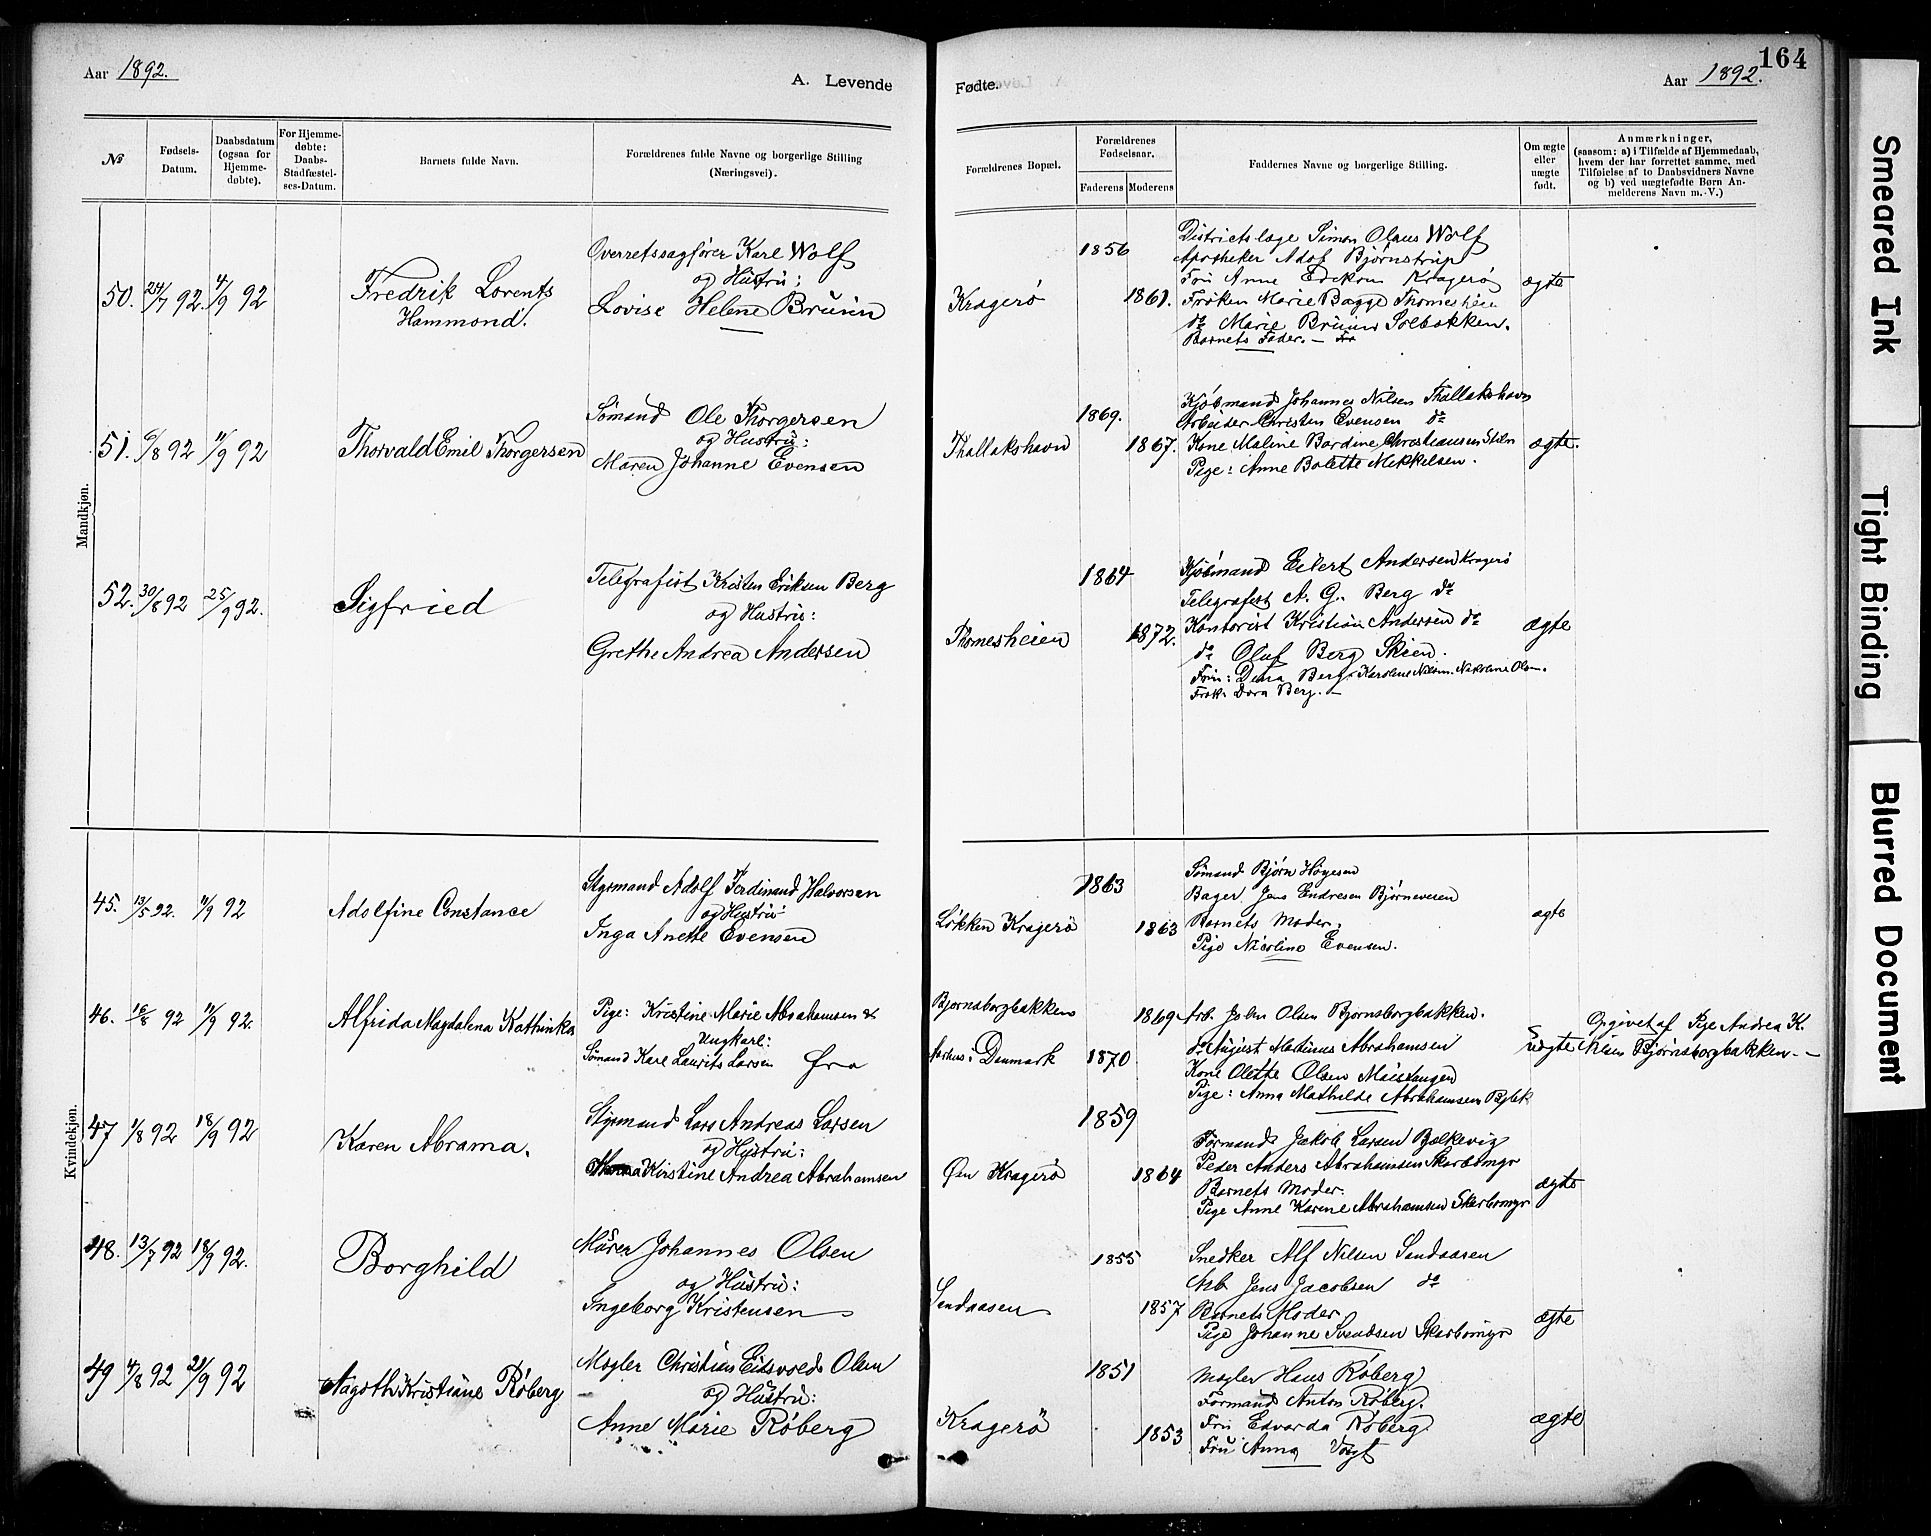 Aar 1892.
A. Levende
Fødte.
Aar 1892.
164
№
Fødsels-Datum.
Daabsdatum (ogsaa for Hjemme-døbte).
For Hjemme-døbte: Daabs-Stadfæstel-ses-Datum.
Barnets fulde Navn.
Forældrenes fulde Navne og borgerlige Stilling (Næringsvei).
Forældrenes Bopæl.
Forældrenes Fødselsaar.
Faderens
Moderens
Faddernes Navne og borgerlige Stilling.
Om ægte eller uægte født.
Anmærkninger,
(saasom: a) i Tilfælde af Hjemmedaab,
hvem der har forrettet samme, med
Tilføielse af to Daabsvidners Navne
og b) ved uægtefødte Børn An-
melderens Navn m. V.)
Mandkjøn.
50. 24/7 92. 4/9 92
Fredrik Lorents
Hammond.
Overretssagfører Karl Wolf
og Hustru:
Lovise Helene Bruun
Kragerø
1856
1861.
Districtslæge Simon Olaus Wolf
Apotheker Adof Bjørnstrup
Fru Anne Kragerø
Frøken Marie Bagge Thomesheien
do Marie Bruun Solbakken.
Barnets Fader. —
ægte
51. 6/8 92 11/9 92
Thorvald Emil Thorgersen
Sømand Ole Thorgersen
og Hustru:
Maren Johanne Evensen
Thallakshavn
1869.
1867.
Kjøbmand Johannes Nilsen Thallakshavn
Arbeider Christen Evensen do
Kone Maline Bardine Christiansen
Pige: Anne Bolette Mikkelsen.
ægte.
52. 30/8 92 25/9 92.
Sigfried
Telegrafist Kristen Eriksen Berg
og Hustru:
Grethe Andrea Andersen
Thomesheien
1864
1872.
Kjøbmand Eilert Andersen Kragerø
Telegrafist A. G. Berg do
Kontorist Kristian Andersen do
do Oluf Berg Skien.
Fru: Dina Berg. Karoline Nilsen. Olsen.
Frøk. Dora Berg. —
ægte
Kvindekjøn.
45. 13/5 92. 11/9 92
Adolfine Constance
Styrmand Adolf Ferdinand Halvorsen
og Hustru
Inga Anette Evensen
Løkken Kragerø
1863
1863
Sømand Bjørn Høgesen
Bager Jens Endresen Bjørneveien
Barnets Moder.
Pige Nicoline Evensen.
ægte
46. 16/8 92 11/9 92.
Alfrida Magdalena Kathinka
Pige: Kristine Marie Abrahamsen &
Ungkarl:
Sømand Karl Laurits Larsen fra
Bjørnsborgbakken
Aarhus i Danmark
1870
1869
Arb. John Olsen Bjornsborgbakken.
do August Mathinus Abrahamsen
Kone Olette Olsen
Pige: Anna Mathilde Abrahamsen
uægte
Opgivet af Pige Andrea K.
Nilsen Bjørnsborgbakken. —
47 1/8 92 18/9 92
Karen Abrama.
Styrmand Lars Andreas Larsen
og Hustru:
Kirstine Andrea Abrahamsen
Øen Kragerø
1859
1864
Formand Jakob Larsen Bælkevig
Peder Anders Abrahamsen Skarbomyr
Barnets Moder.
Pige Anne Karine Abrahamsen Skarbomyr
ægte
48. 13/7 92 18/9 92.
Borghild
Murer Johannes Olsen
og Hustru:
Ingeborg Kristensen
Sandaasen
1855
1857
Snedker Alf Nilsen Sandaasen
Arb Jens Jacobsen do
Barnets Moder
Pige Johanne Svendsen Skarbomyr
ægte
49 4/8 92 21/9 92
Aagoth Kristiane Røberg
Mægler Christian Eidsvold Olsen
og Hustru:
Anne Marie Røberg
Kragerø
1851
1853
Mægler Hans Røberg
Formand Anton Røberg.
Fru Edvarda Røberg
Fru Anna Voigt
ægte
Smeared Ink
Tight Binding
Blurred Document